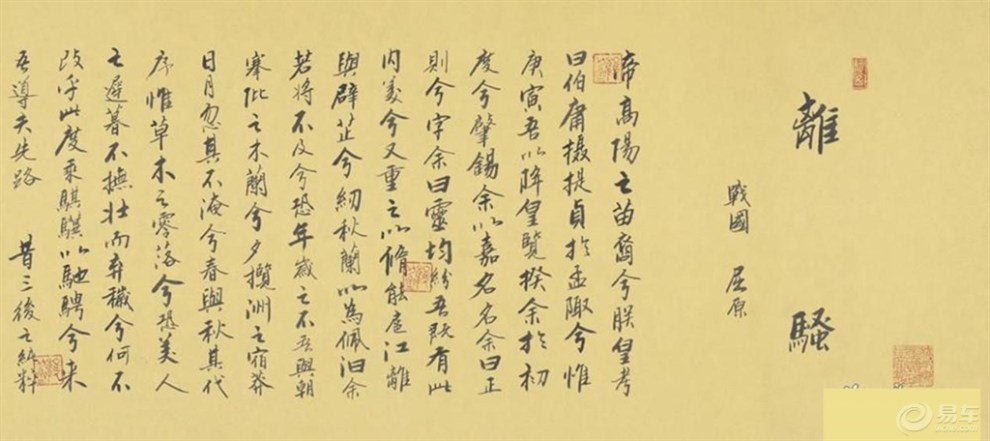 離騷
戰國 屈原
帝高陽之苗裔兮朕皇考
曰伯庸攝提貞於孟陬兮惟
庚寅吾以降皇覽揆余於初
度兮肇錫余以嘉名名余曰正
則兮字余曰靈均紛吾既有此
內美兮又重之以脩能扈江離
與辟芷兮紉秋蘭以為佩汩余
若將不及兮恐年歲之不吾與朝
搴阰之木蘭兮夕攬洲之宿莽
日月忽其不淹兮春與秋其代
序惟草木之零落兮恐美人
之遲暮不撫壯而弃穢兮何不
改乎此度乘騏驥以馳騁兮来
吾導夫先路 昔三後之純粹
易车